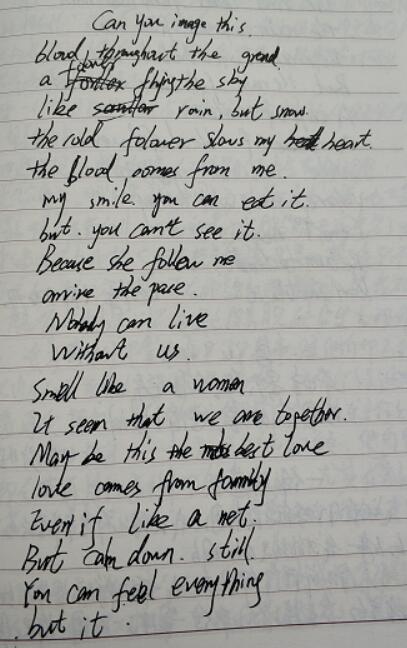 Can you image this.
blood, throughout the grond.
a flying the sky
like rain, but snow.
the cold folower slows my heart.
the blood, comes from me.
my smile. you can eat it.
but. you can't see it.
Becouse she follow me
arrive the pace.
Nobody can live
Without us.
Smell like a women
It seem that we are together.
May be this the best love
love comes from family
Even if like a net.
But calm down. still.
You can feel everything
but it.